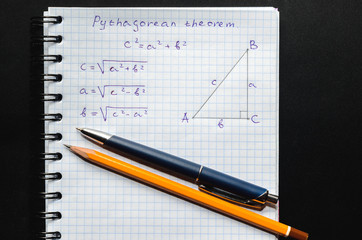 Pythagorean theorem
c² = a² + b²
c = √a² + b²
a = √c² - b²
b = √c² - a²
B
c
a
A
b
C